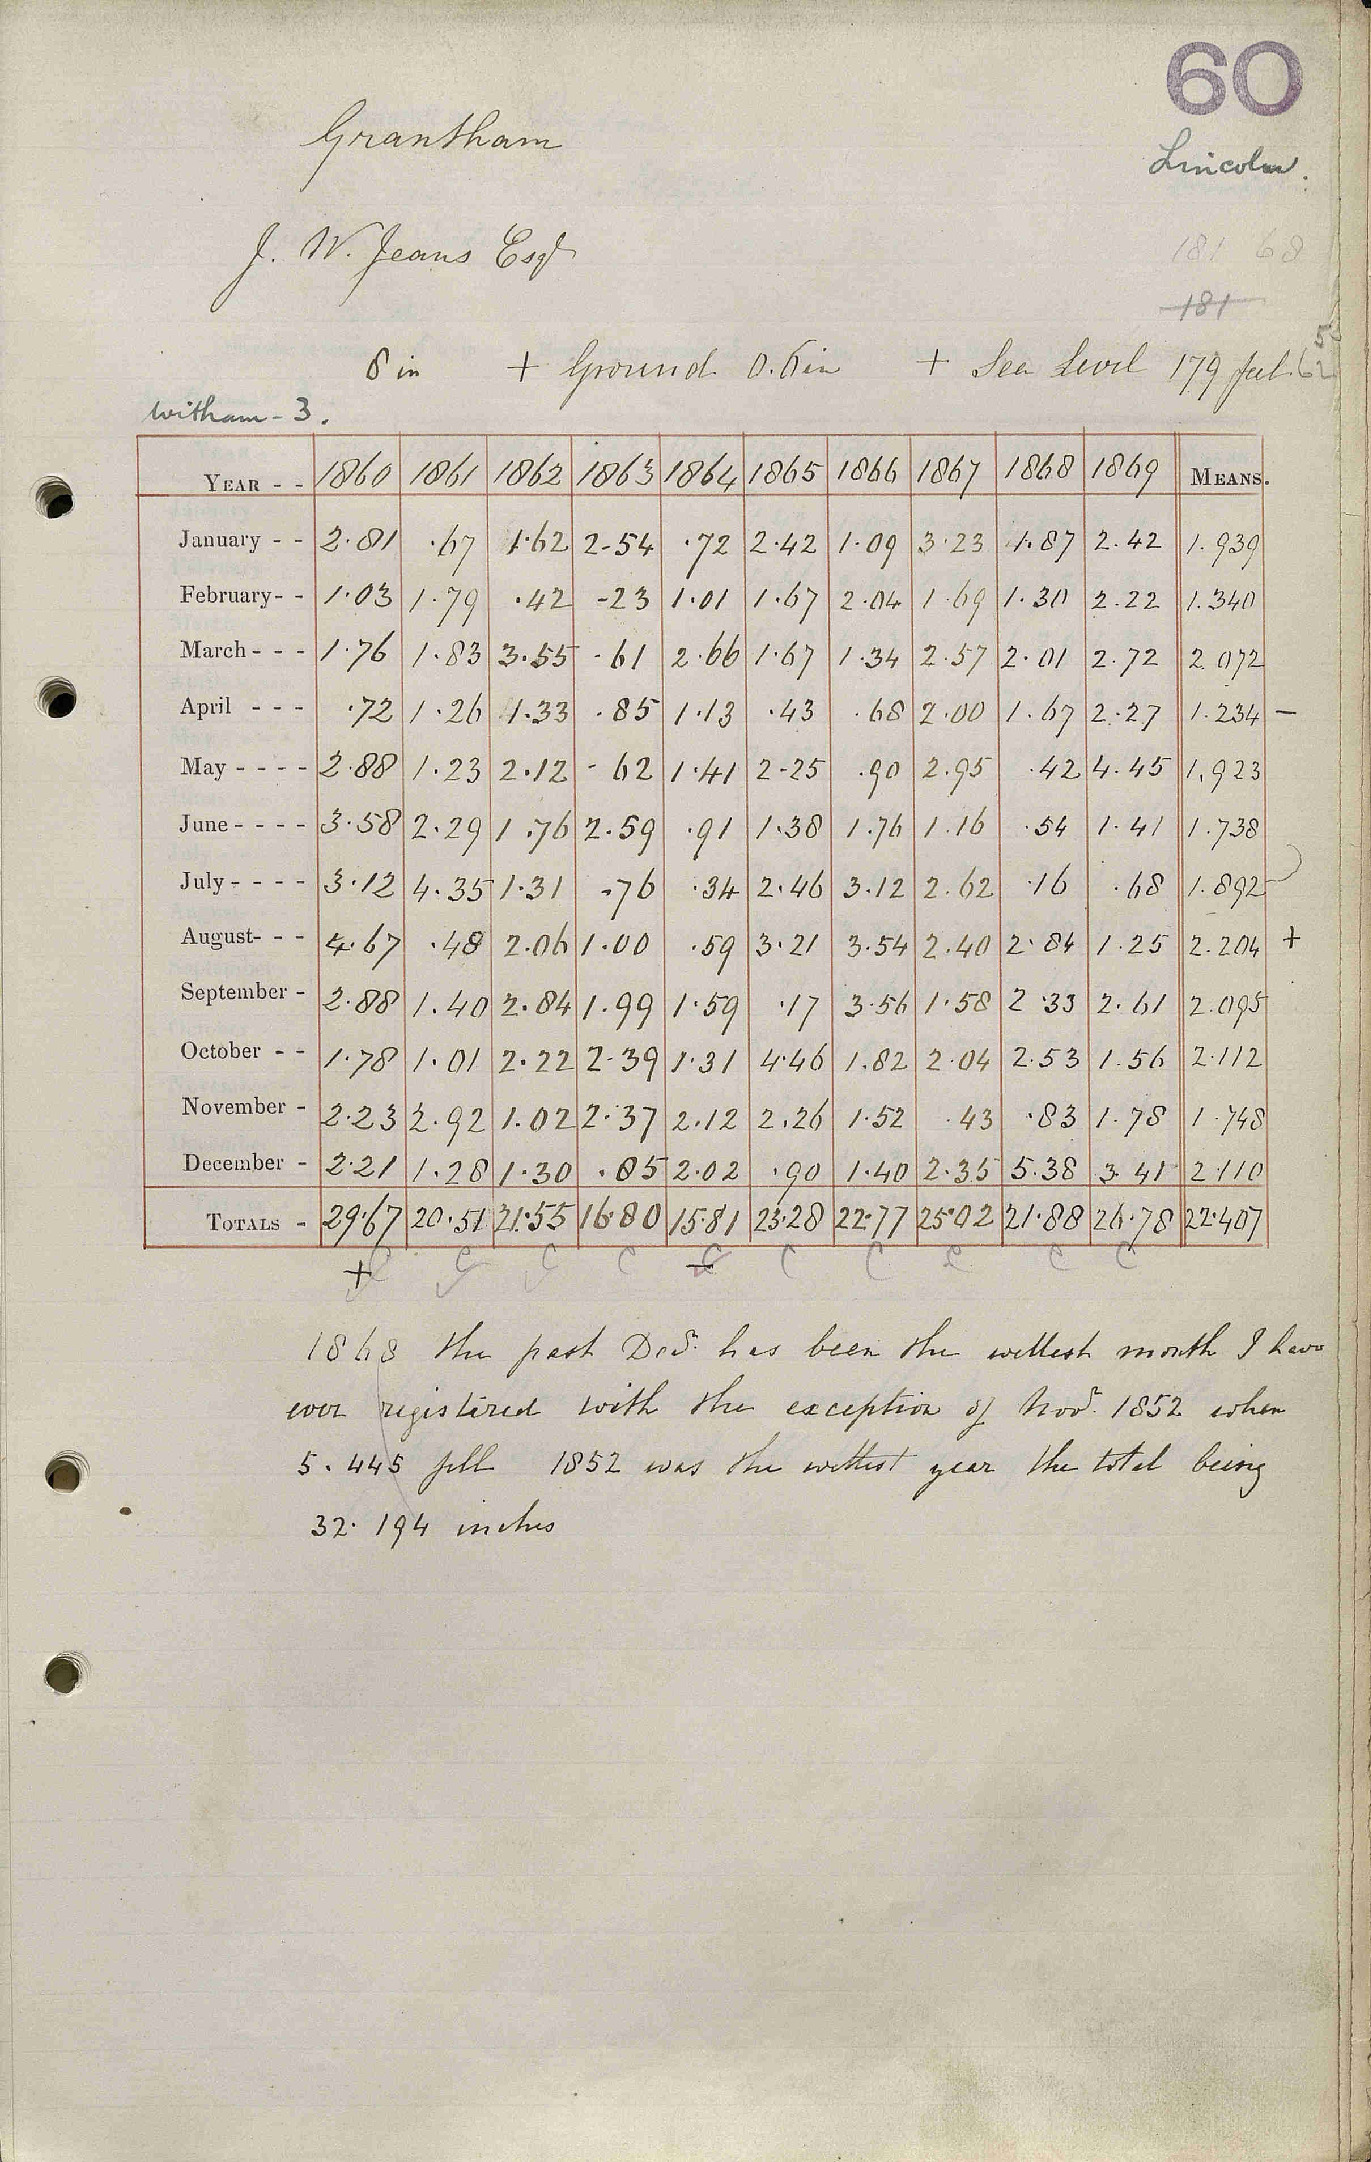 60
Grantham
Lincoln.
J. W. Jeans Esqr
181 68
181
8 in + Ground 0.6 in + Sea Level 179 feet
Witham - 3.
YEAR - - 1860 1861 1862 1863 1864 1865 1866 1867 1868 1869 MEANS.
January - - 2.81 .67 1.62 2.54 .72 2.42 1.09 3.23 1.87 2.42 1.939
February - - 1.03 1.79 .42 .23 1.01 1.67 2.04 1.69 1.30 2.22 1.340
March - - - 1.76 1.83 3.55 .61 2.66 1.67 1.34 2.57 2.01 2.72 2.072
April - - - .72 1.26 1.33 .85 1.13 .43 .68 2.00 1.67 2.27 1.234 —
May - - - - 2.88 1.23 2.12 .62 1.41 2.25 .90 2.95 .42 4.45 1.923
June - - - - 3.58 2.29 1.76 2.59 .91 1.38 1.76 1.16 .54 1.41 1.738
July - - - - 3.12 4.35 1.31 .76 .34 2.46 3.12 2.62 .16 .68 1.892
August - - - 4.67 .48 2.06 1.00 .59 3.21 3.54 2.40 2.84 1.25 2.204 +
September - 2.88 1.40 2.84 1.99 1.59 .17 3.56 1.58 2.33 2.61 2.095
October - - 1.78 1.01 2.22 2.39 1.31 4.46 1.82 2.04 2.53 1.56 2.112
November - 2.23 2.92 1.02 2.37 2.12 2.26 1.52 .43 .83 1.78 1.748
December - 2.21 1.28 1.30 .85 2.02 .90 1.40 2.35 5.38 3.41 2.110
TOTALS - 29.67 20.51 21.55 16.80 15.81 23.28 22.77 25.02 21.88 26.78 22.407
+ c c c c c c c c c c
1868 the past Decr. has been the wettest month I have
ever registered with the exception of Novr. 1852 when
5.445 fell 1852 was the wettest year the total being
32.194 inches